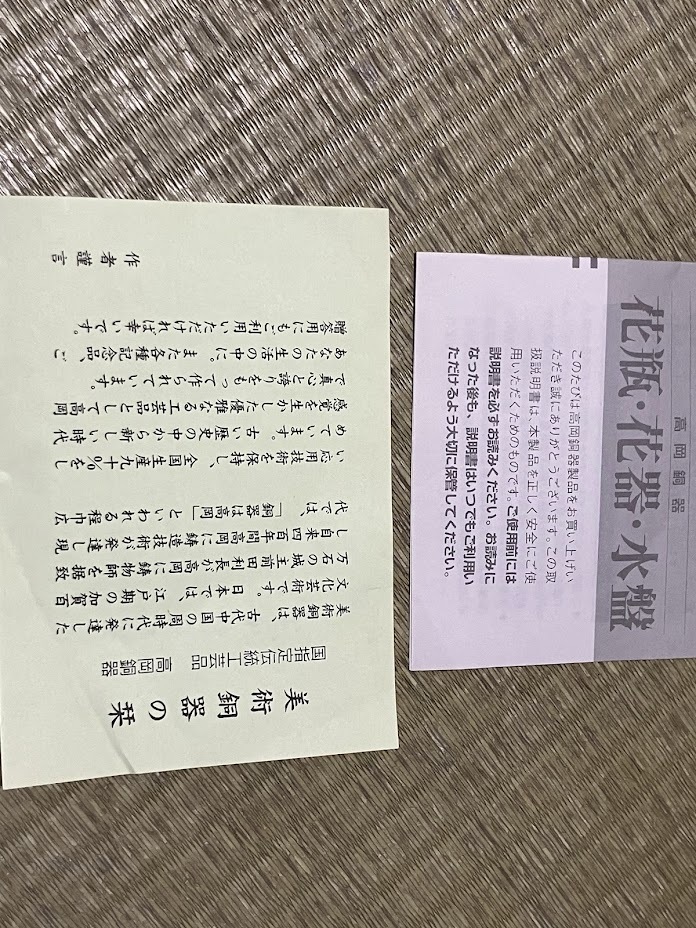 美術銅器の栞
国指定伝統工芸品 高岡銅器
美術銅器は、古代中国の周時代に発達した
文化芸術です。日本では、江戸期の加賀百
万石の城主前田利長が高岡に鋳物師を据致
し自来四百年間高岡に鋳造技術が発達し現
代では、「銅器は高岡」といわれる程巾広
い応用技術を保持し、全国生産九十%をし
めています。古い歴史の中から新しい時代
感覚を生かした優雅なる工芸品として高岡
で真心と誇りをもって作られています。
あなたの生活の中に。また各種記念品、ご
贈答用にもご利用いただければ幸いです。
作者謹言
高岡銅器
花瓶・花器・水盤
このたびは高岡銅器製品をお買い上げい
ただき誠にありがとうございます。この取
扱説明書は、本製品を正しく安全にご使
用いただくためのものです。ご使用前には
説明書を必ずお読みください。お読みに
なった後も、説明書はいつでもご利用い
ただけるよう大切に保管してください。